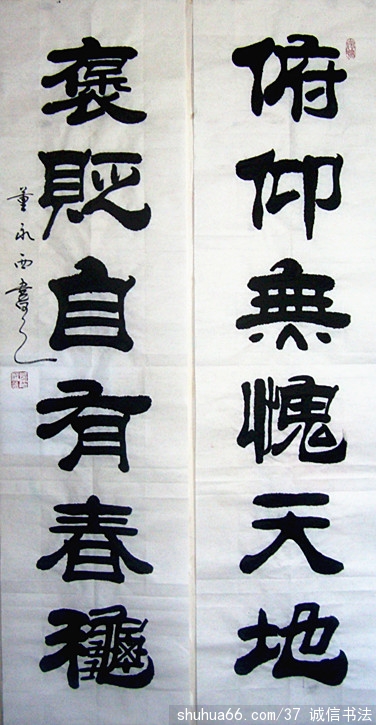 俯仰無愧天地
褒貶自有春龝
董永西書之
shuhua66.com/37 诚信书法